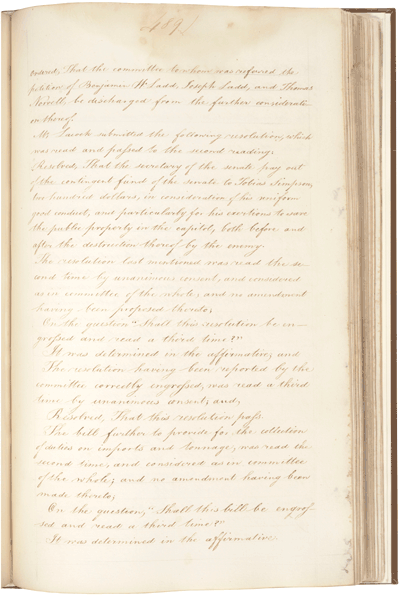 489
That the committee to whom was referred the
petition of Benjamin W. Ladd, Joseph Ladd, and Thomas
Norvell be discharged from the further consideration
thereof.
Mr Lacock submitted the following resolution, which
was read and passed to the second reading:
Resolved, That the secretary of the senate pay out
of the contingent fund of the senate to Tobias Simpson,
two hundred dollars, in consideration of his uniform
good conduct, and particularly for his exertions to save
the public property in the capitol, both before and
after the destruction thereof by the enemy.
The resolution last mentioned was read the se-
cond time by unanimous consent, and considered
as in committee of the whole; and no amendment
having been proposed thereto;
On the question "Shall this resolution be en-
grossed and read a third time?"
It was determined in the affirmative; and
The resolution having been reported by the
committee correctly engrossed, was read a third
time by unanimous consent; and,
Resolved, That this resolution pass.
The bill further to provide for the collection
of duties on imports and tonnage, was read the
second time; and considered as in committee
of the whole; and no amendment having been
made thereto;
On the question, "Shall this bill be engros-
sed and read a third time?"
It was determined in the affirmative.